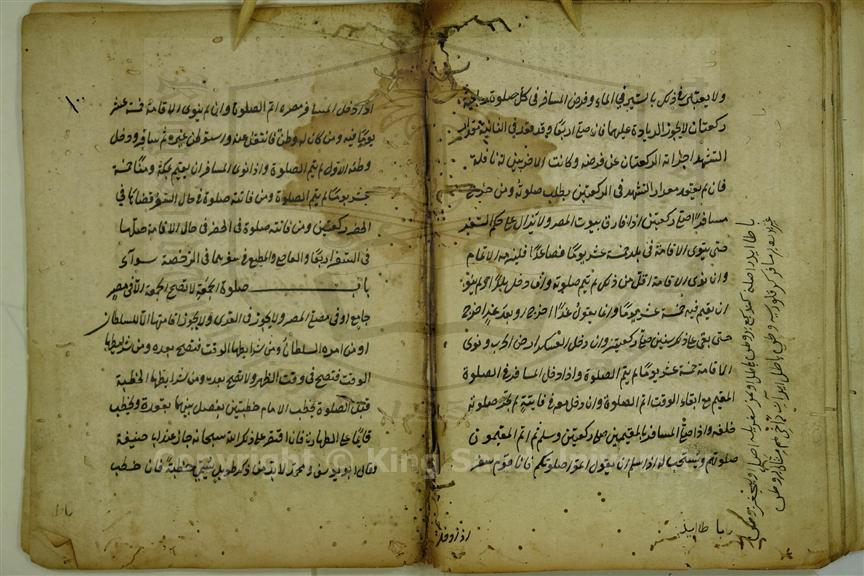 ولا يعتبر في ذلك بالسير في الماء وفرض المسافر في كل صلوة رباعية
ركعتان لا يجوز الزيادة عليهما فان صلى اربعًا وقد قعد في الثانية مقدار
التشهد اجزأته الركعتان عن فرضه وكانت الاخريين له نافلة
فان لم يقعد مقدار التشهد في الركعتين بطلت صلوته ومن خرج
مسافرًا صلى ركعتين اذا فارق بيوت المصر ولا يزال على حكم السفر
حتى ينوى الاقامة في بلد خمسة عشر يومًا فصاعدًا فيلزمه الاتمام
وان نوى الاقامة اقل من ذلك لم يتم صلوته وان دخل بلدًا ولم ينو
ان يقيم فيه خمسة عشر يومًا وانما يقول غدًا اخرج او بعد غد اخرج
حتى بقى على ذلك سنين صلى ركعتين وان دخل العسكر ارض الحرب ونوى
الاقامة خمسة عشر يومًا لم يتم الصلوة واذا دخل المسافر في الصلوة
المقيم مع ابقاء الوقت اتم الصلوة وان دخل معه في فايتة لم يجز صلوته
خلفه واذا صلى المسافر بالمقيمين صلى ركعتين وسلم ثم اتم المقيمون
صلوتهم ويستحب له اذا سلم ان يقول اتموا صلوتكم فانا قوم سفر
اذا دخل المسافر مصره اتم الصلوة وان لم ينوى الاقامة خمسة عشر
يومًا فيه ومن كان له وطن فانتقل عنه واستوطن غيره ثم سافر ودخل
وطنه الاول لم يتم الصلوة واذا نوى المسافر ان يقيم بمكة ومنًا خمسة
عشر يومًا لم يتم الصلوة ومن فاتته صلوة في حال السفر قضاها في
الحضر ركعتين ومن فاتته صلوة في الحضر في حال الاقامة صلّاها
في السفر اربعًا والعاصى والمطيع في سفرهما في الرخصة سوآء
باب صلوة الجمعة لا تصح الجمعة الا في مصر
جامع او في مصلى المصر ولا يجوز في القرى ولا يجوز اقامتها الا للسلطان
او من امره السلطان ومن شرايطها الوقت فتصح بعده ومن شرايطها
الوقت فتصح في وقت الظهر ولا تصح بعده ومن شرايطها الخطبة
قبل الصلوة يخطب الامام خطبتين يفصل بينهما بقعدة ويخطب
قايمًا على الطهارة فان اقتصر على ذكر الله سبحانه جاز عند ابى حنيفة
وقال ابو يوسف ومحمد لا بد من ذكر طويل يسمى خطبة فان خطب